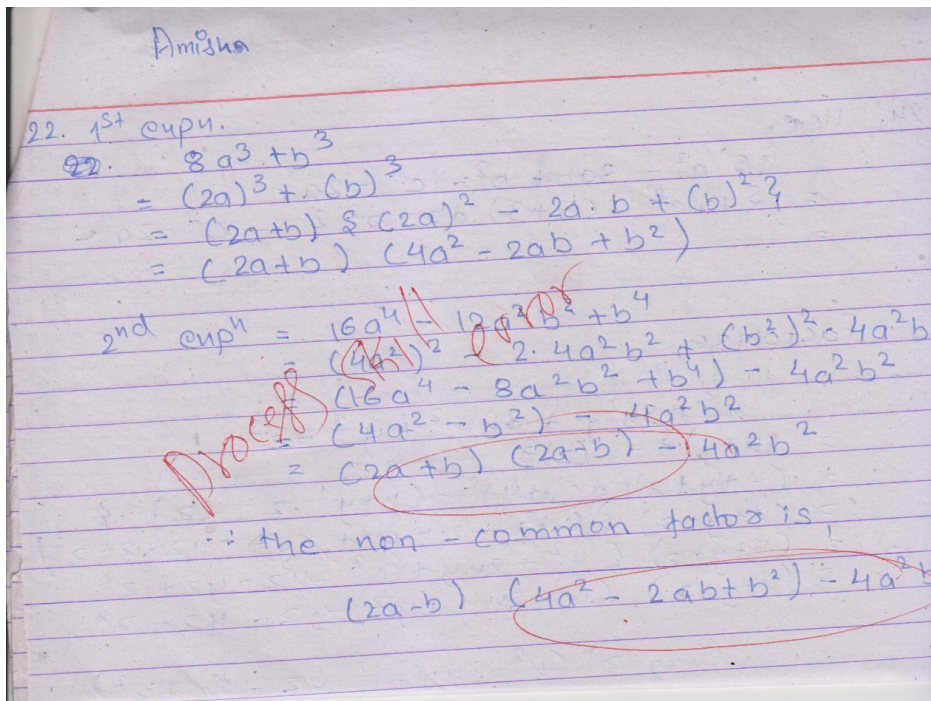 Amisha
22. 1st expn.
22. 8a³ + b³
= (2a)³ + (b)³
= (2a+b) { (2a)² - 2a.b + (b)² }
= (2a+b) (4a² - 2ab + b²)
2nd expⁿ = 16a⁴ - 12a²b² + b⁴
= (4a²)² - 2.4a²b² + (b²)² - 4a²b
= (16a⁴ - 8a²b² + b⁴) - 4a²b²
= (4a² - b²) - 4a²b²
= (2a+b) (2a-b) - 4a²b²
Process Skill error
∴ the non-common factor is,
(2a-b) (4a² - 2ab + b²) - 4a²b